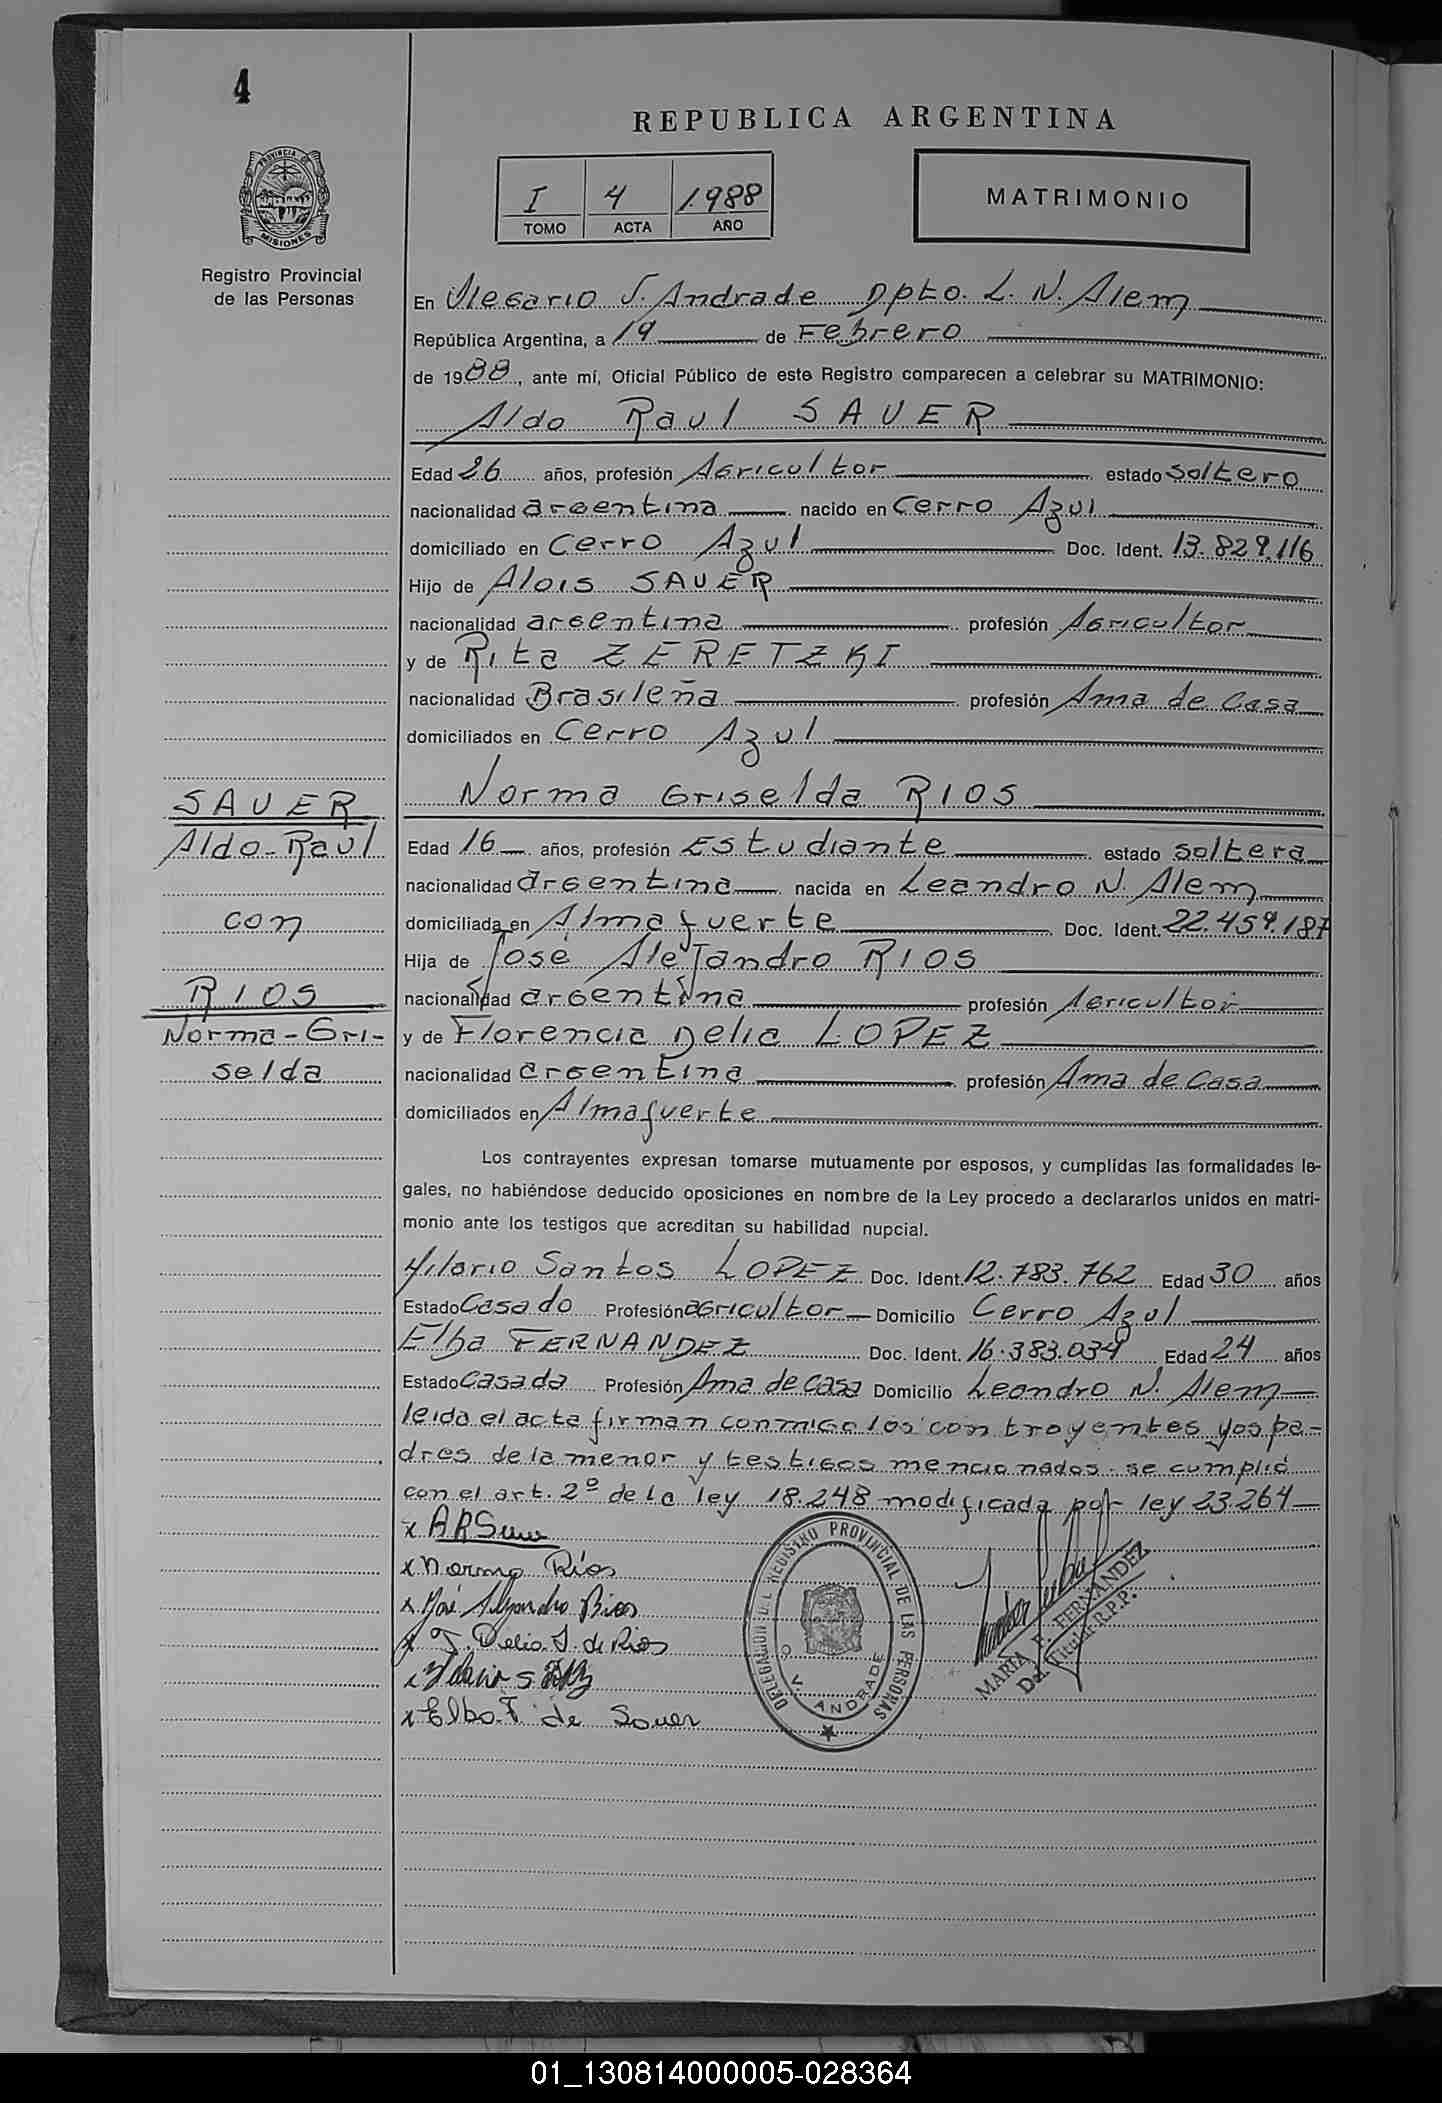 4
REPUBLICA ARGENTINA
PROVINCIA DE MISIONES
Registro Provincial
de las Personas
I 4 1988
TOMO ACTA AÑO
MATRIMONIO
En Olegario V. Andrade Dpto. L. N. Alem
República Argentina, a 19 de Febrero
de 1988, ante mí, Oficial Público de este Registro comparecen a celebrar su MATRIMONIO:
Aldo Raul SAUER
Edad 26 años, profesión Agricultor estado soltero
nacionalidad argentina nacido en Cerro Azul
domiciliado en Cerro Azul Doc. Ident. 13.829.116
Hijo de Alois SAUER
nacionalidad argentina profesión Agricultor
y de Rita ZERETZKI
nacionalidad Brasileña profesión Ama de Casa
domiciliados en Cerro Azul
SAUER
Aldo-Raul
con
RIOS
Norma-Gri-
selda
Norma Griselda RIOS
Edad 16 años, profesión Estudiante estado soltera
nacionalidad argentina nacida en Leandro N. Alem
domiciliada en Almafuerte Doc. Ident. 22.459.187
Hija de José Alejandro RIOS
nacionalidad argentina profesión Agricultor
y de Florencia Delia LOPEZ
nacionalidad argentina profesión Ama de Casa
domiciliados en Almafuerte
Los contrayentes expresan tomarse mutuamente por esposos, y cumplidas las formalidades le-
gales, no habiéndose deducido oposiciones en nombre de la Ley procedo a declararlos unidos en matri-
monio ante los testigos que acreditan su habilidad nupcial.
Hilario Santos LOPEZ Doc. Ident. 12.783.762 Edad 30 años
Estado Casado Profesión agricultor Domicilio Cerro Azul
Elba FERNANDEZ Doc. Ident. 16.383.034 Edad 24 años
Estado Casada Profesión Ama de casa Domicilio Leandro N. Alem
leida el acta firman conmigo los contrayentes yos pa-
dres de la menor y testigos mencionados. se cumplió
con el art. 2º de la ley 18.248 modificada por ley 23.264
x ARSauer
x Norma Rios
x José Alejandro Rios
x F. Delia L. de Rios
x Hilario S
x Elba F de Sauer
DELEGACION DEL REGISTRO PROVINCIAL DE LAS PERSONAS
O. V. ANDRADE
MARIA E. FERNANDEZ
Del. Titular R.P.P.
01_130814000005-028364